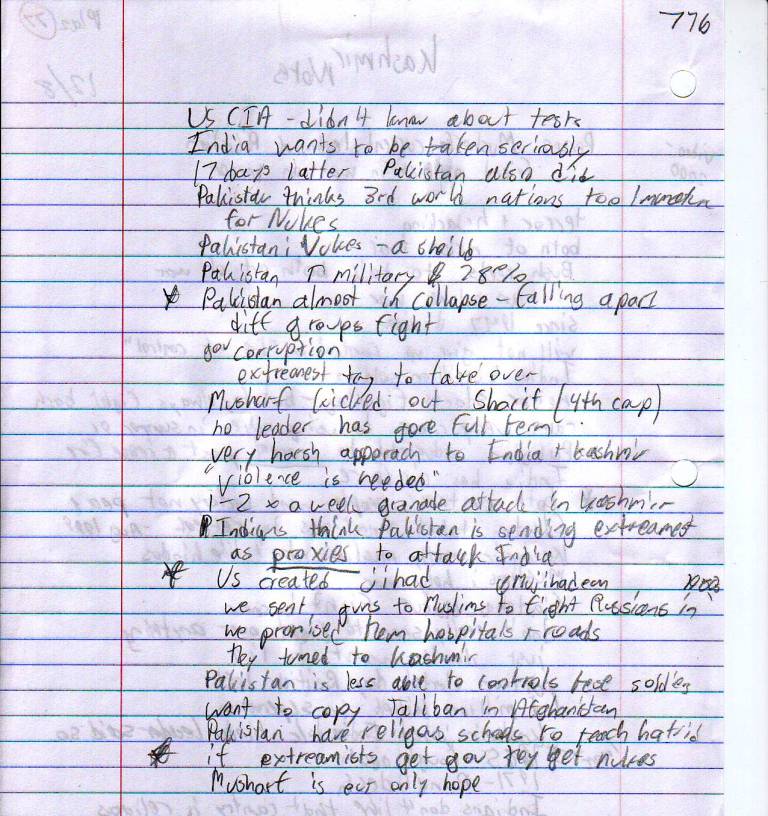 776
US CIA - didn't know about tests
India wants to be taken seriously
17 days latter Pakistan also did
Pakistan thinks 3rd world nations too Immature
for Nukes
Pakistani Nukes - a sheild
Pakistan ↑ military $ 28%
Pakistan almost in collapse - falling apart
diff groups fight
gov corruption
extreamest try to take over
Musharf kicked out Sharif (4th coup)
no leader has gone full term.
very harsh apporach to India + Kashmir
"Violence is needed"
1-2 x a week granade attack in Kashmir
Indians think Pakistan is sending extreamest
as proxies to attack India
US created jihad Mujihadean
we sent guns to Muslims to fight Russians in
we promised them hospitals + roads
they turned to Kashmir
Pakistan is less able to controls these soldies
want to copy Taliban in Afghanistan
Pakistan have religous schools to teach hatrid
if extreamists get gov they get nukes
Musharf is our only hope